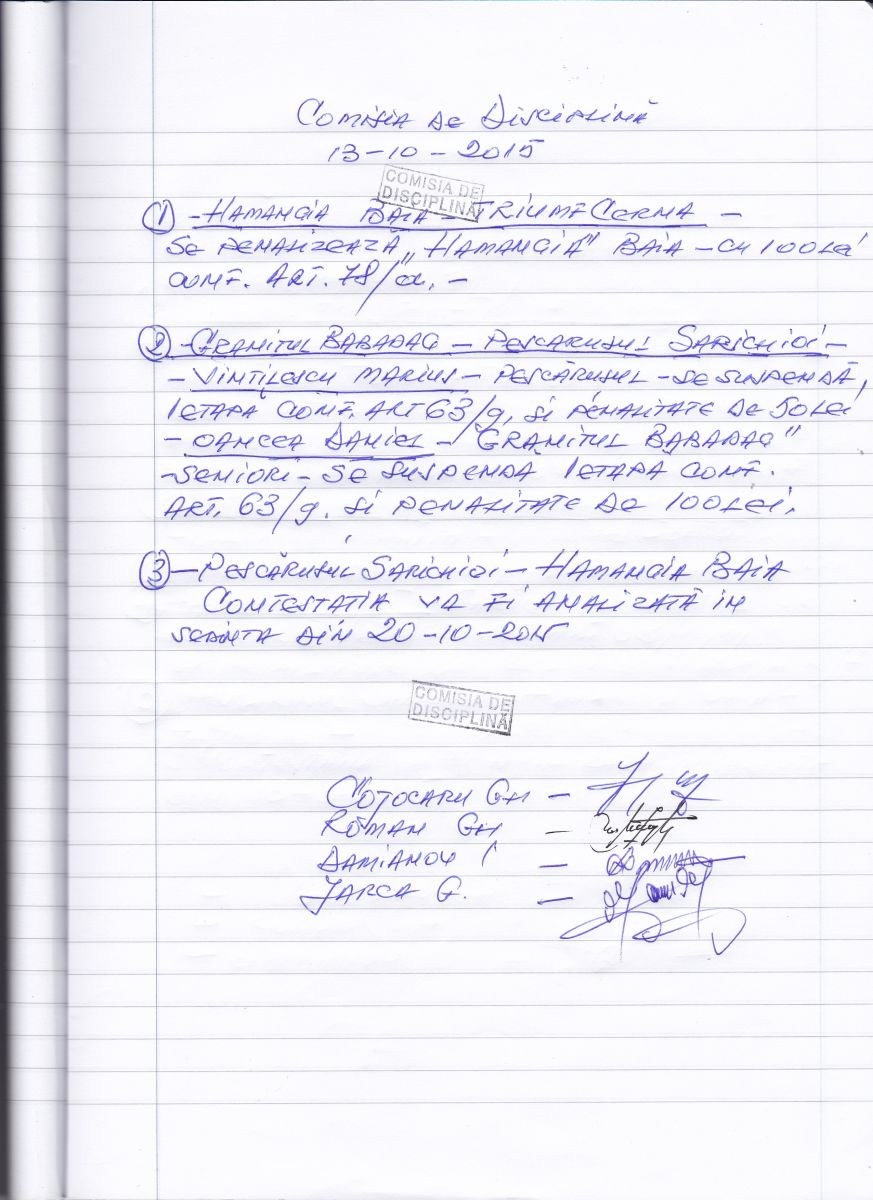 COMISIA DE DISCIPLINĂ
13-10-2015
COMISIA DE
DISCIPLINĂ
① - HAMANGIA BAIA - TRIUMF CERNA -
SE PENALIZEAZĂ „HAMANGIA" BAIA - CU 100 LEI
CONF. ART. 78/a. -
② - GRANITUL BABADAG - PESCARUSUL SARICHIOI -
- VINTILESCU MARIUS - PESCĂRUSUL - SE SUSPENDĂ,
1 ETAPĂ CONF. ART 63/g, SI PENALITATE DE 50 LEI
- OANCEA DANIEL - "GRANITUL BABADAG"
- SENIORI - SE SUSPENDĂ 1 ETAPĂ CONF.
ART. 63/g. SI PENALITATE DE 100 LEI.
③ - PESCĂRUSUL SARICHIOI - HAMANGIA BAIA
CONTESTATIA VA FI ANALIZATĂ IN
SEDINTA DIN 20-10-2015
COMISIA DE
DISCIPLINĂ
COJOCARU GH -
ROMAN GH -
DAMIANOV I -
JARCA G. -